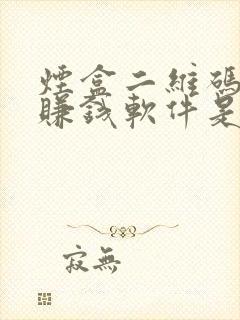 煙盒二維碼
賺錢軟件是
寂無